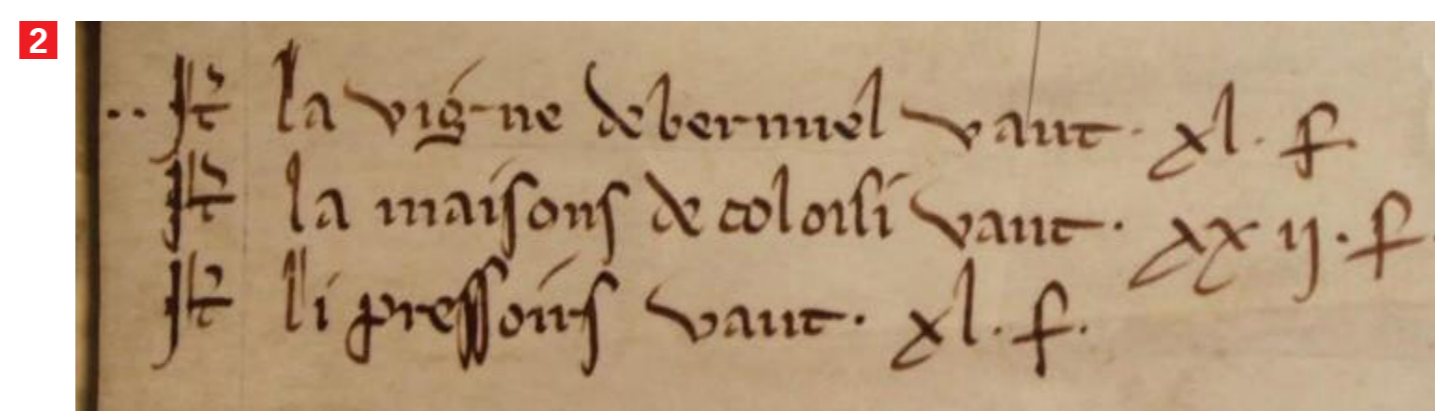 2
It la vigne de bermuel vaut · xl · s
It la maisons de coloisi vaut · xx ij · s
It li pressoirs vaut · xl · s ·